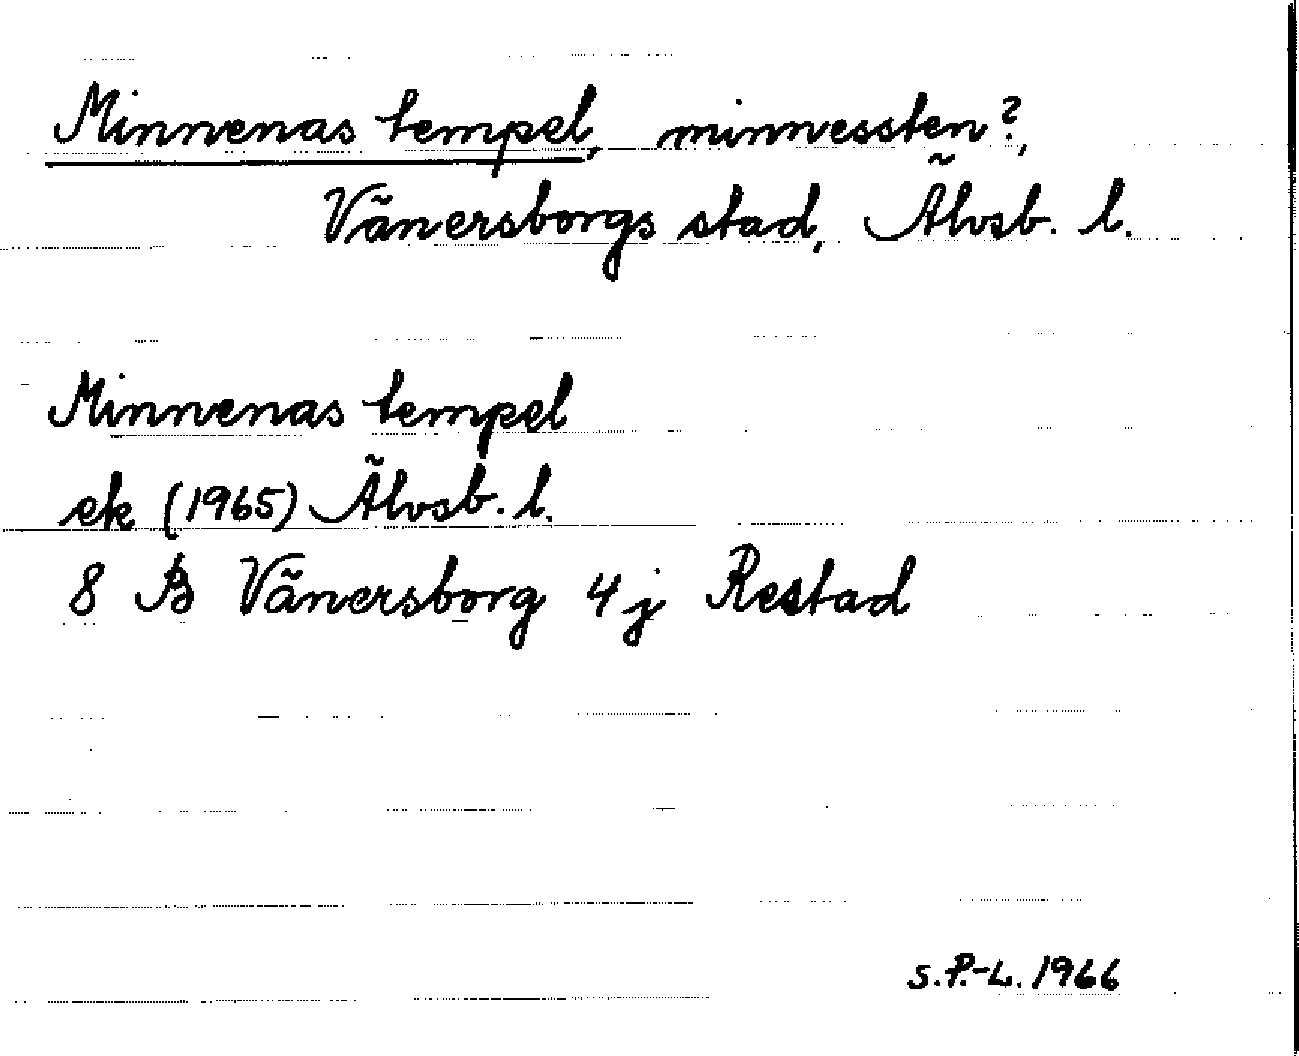 Minnenas tempel, minnessten?,
Vänersborgs stad, Älvsb. l.
Minnenas tempel
ek (1965) Älvsb. l.
8 B Vänersborg 4 j Restad
S.P.-L. 1966